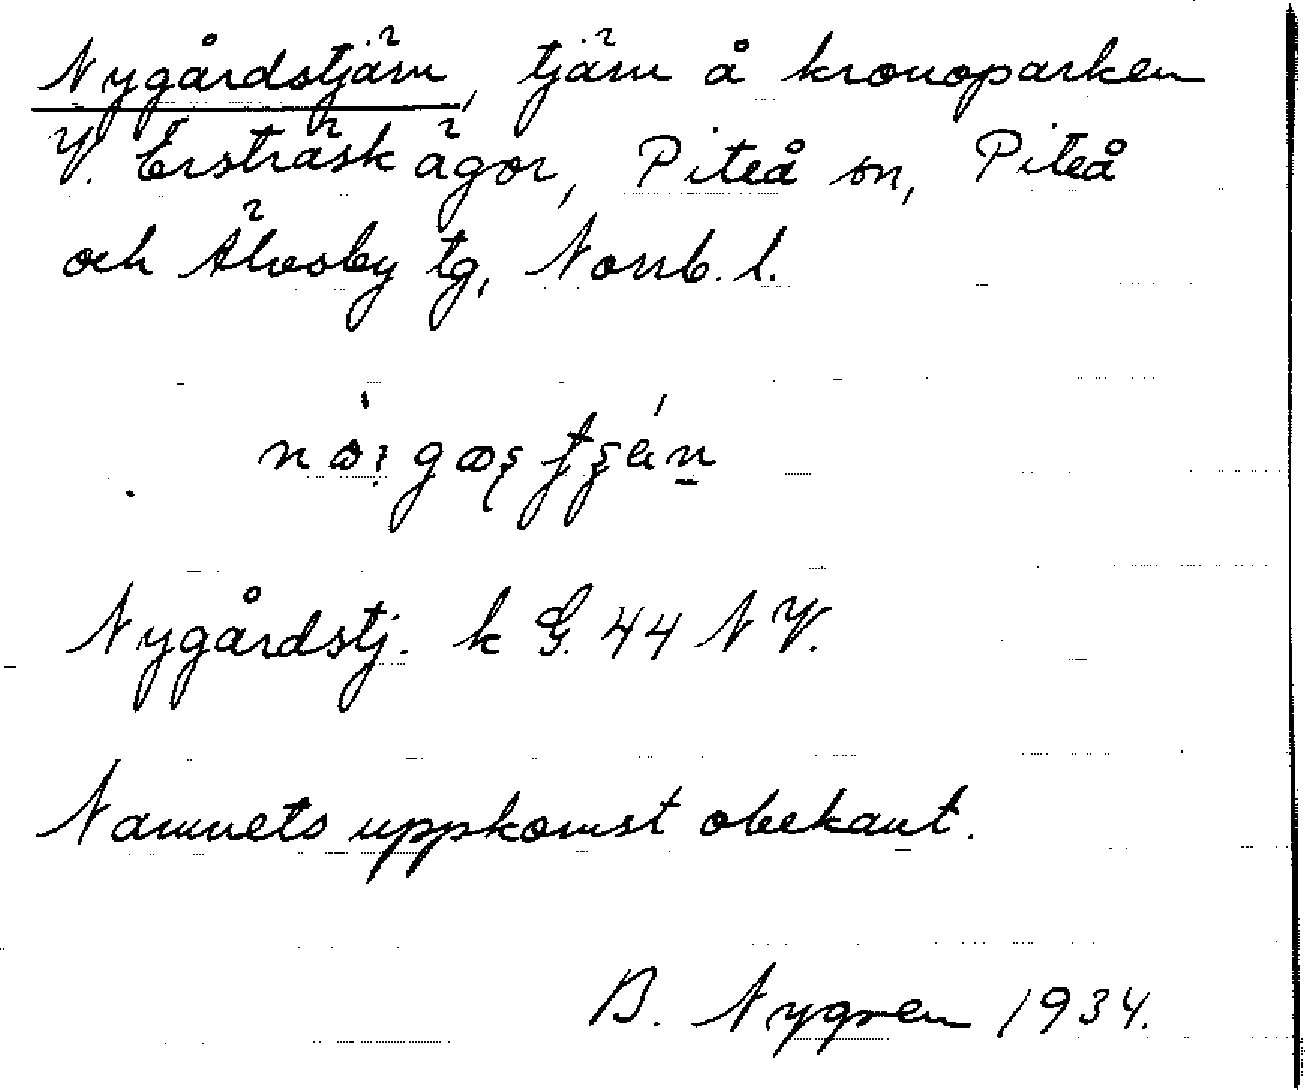 Nygårdstjärn, tjärn å kronoparken
V. Ersträsk ägor, Piteå sn, Piteå
och Älvsby tg, Norrb. l.
Nygårdstj. k G. 44 N V.
Namnets uppkomst obekant.
B. Nygren 1934.